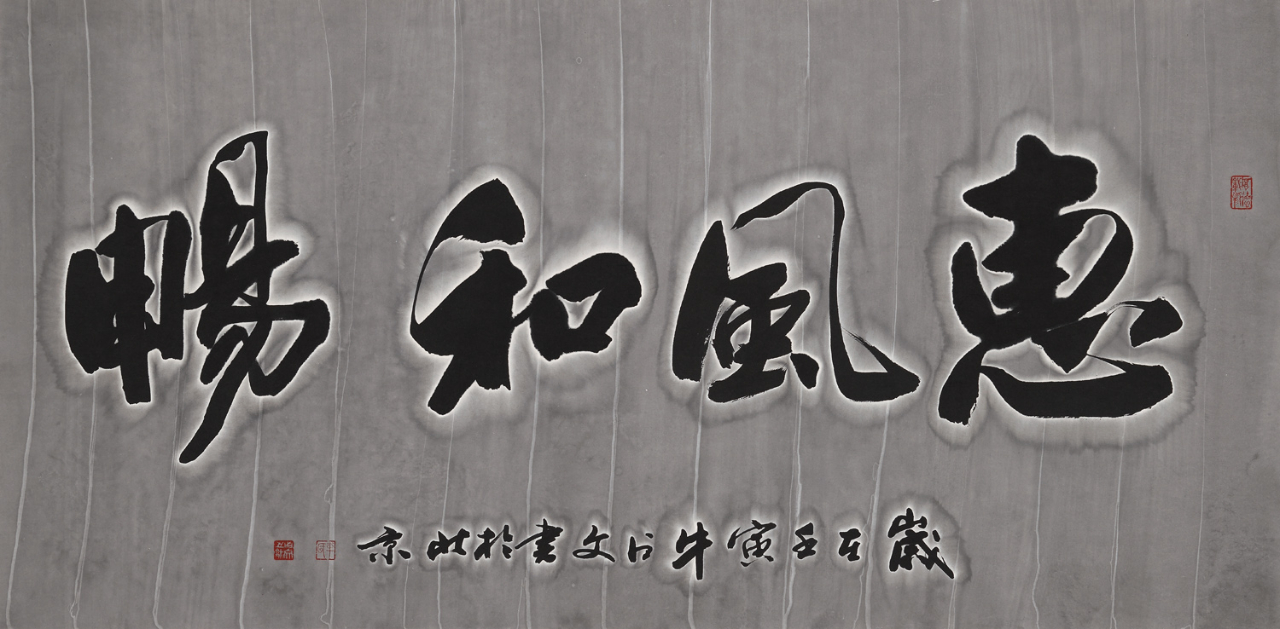 惠風和暢
歲在壬寅牛以文書於北京